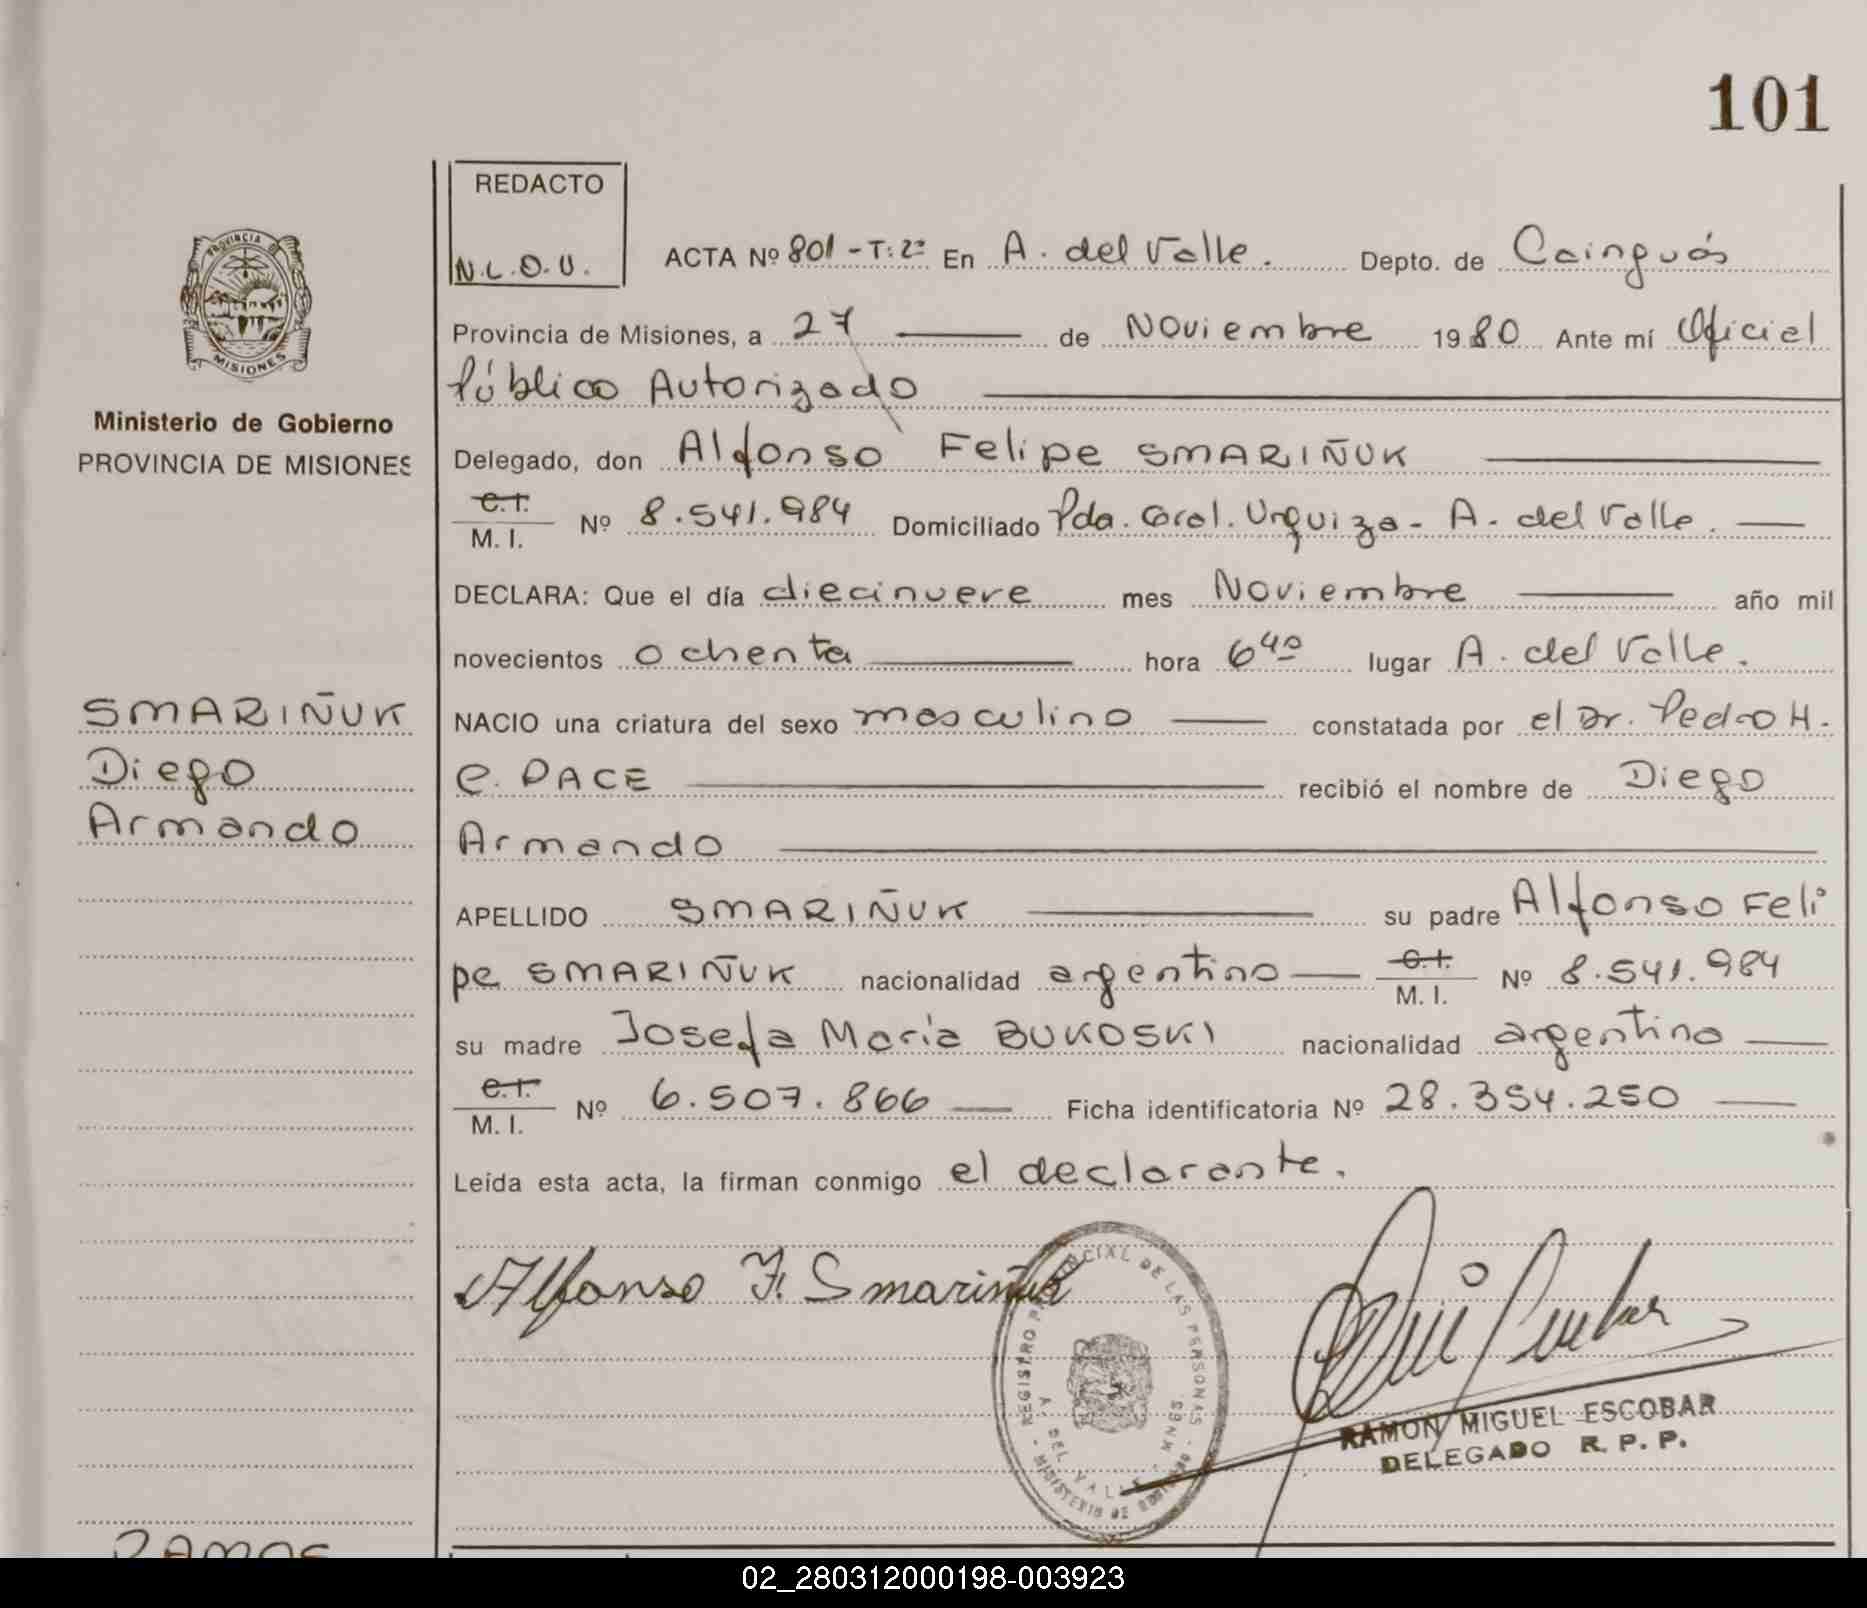 101
REDACTO
N.L.O.U.
ACTA Nº 801 - T: 2º En A. del Valle. Depto. de Cainguás
PROVINCIA DE
MISIONES
Provincia de Misiones, a 27 de Noviembre 1980 Ante mí Oficial
Público Autorizado
Ministerio de Gobierno
PROVINCIA DE MISIONES
Delegado, don Alfonso Felipe SMARIÑUK
C.I.
M. I. Nº 8.541.984 Domiciliado Pda. Gral. Urquiza - A. del Valle.
DECLARA: Que el día diecinueve mes Noviembre año mil
novecientos ochenta hora 6 40 lugar A. del Valle.
SMARIÑUK
Diego
Armando
NACIO una criatura del sexo masculino constatada por el Dr. Pedro H.
C. PACE recibió el nombre de Diego
Armando
APELLIDO SMARIÑUK su padre Alfonso Feli
pe SMARIÑUK nacionalidad argentino C.I. M. I. Nº 8.541.984
su madre Josefa María BUKOSKI nacionalidad argentina
C.I.
M. I. Nº 6.507.866 Ficha identificatoria Nº 28.354.250
Leída esta acta, la firman conmigo el declarante.
Alfonso F. Smariñuk
REGISTRO PROVINCIAL DE LAS PERSONAS
A. DEL VALLE - MNES.
MINISTERIO DE GOBIERNO
RAMON MIGUEL ESCOBAR
DELEGADO R. P. P.
RAMOS
02_280312000198-003923